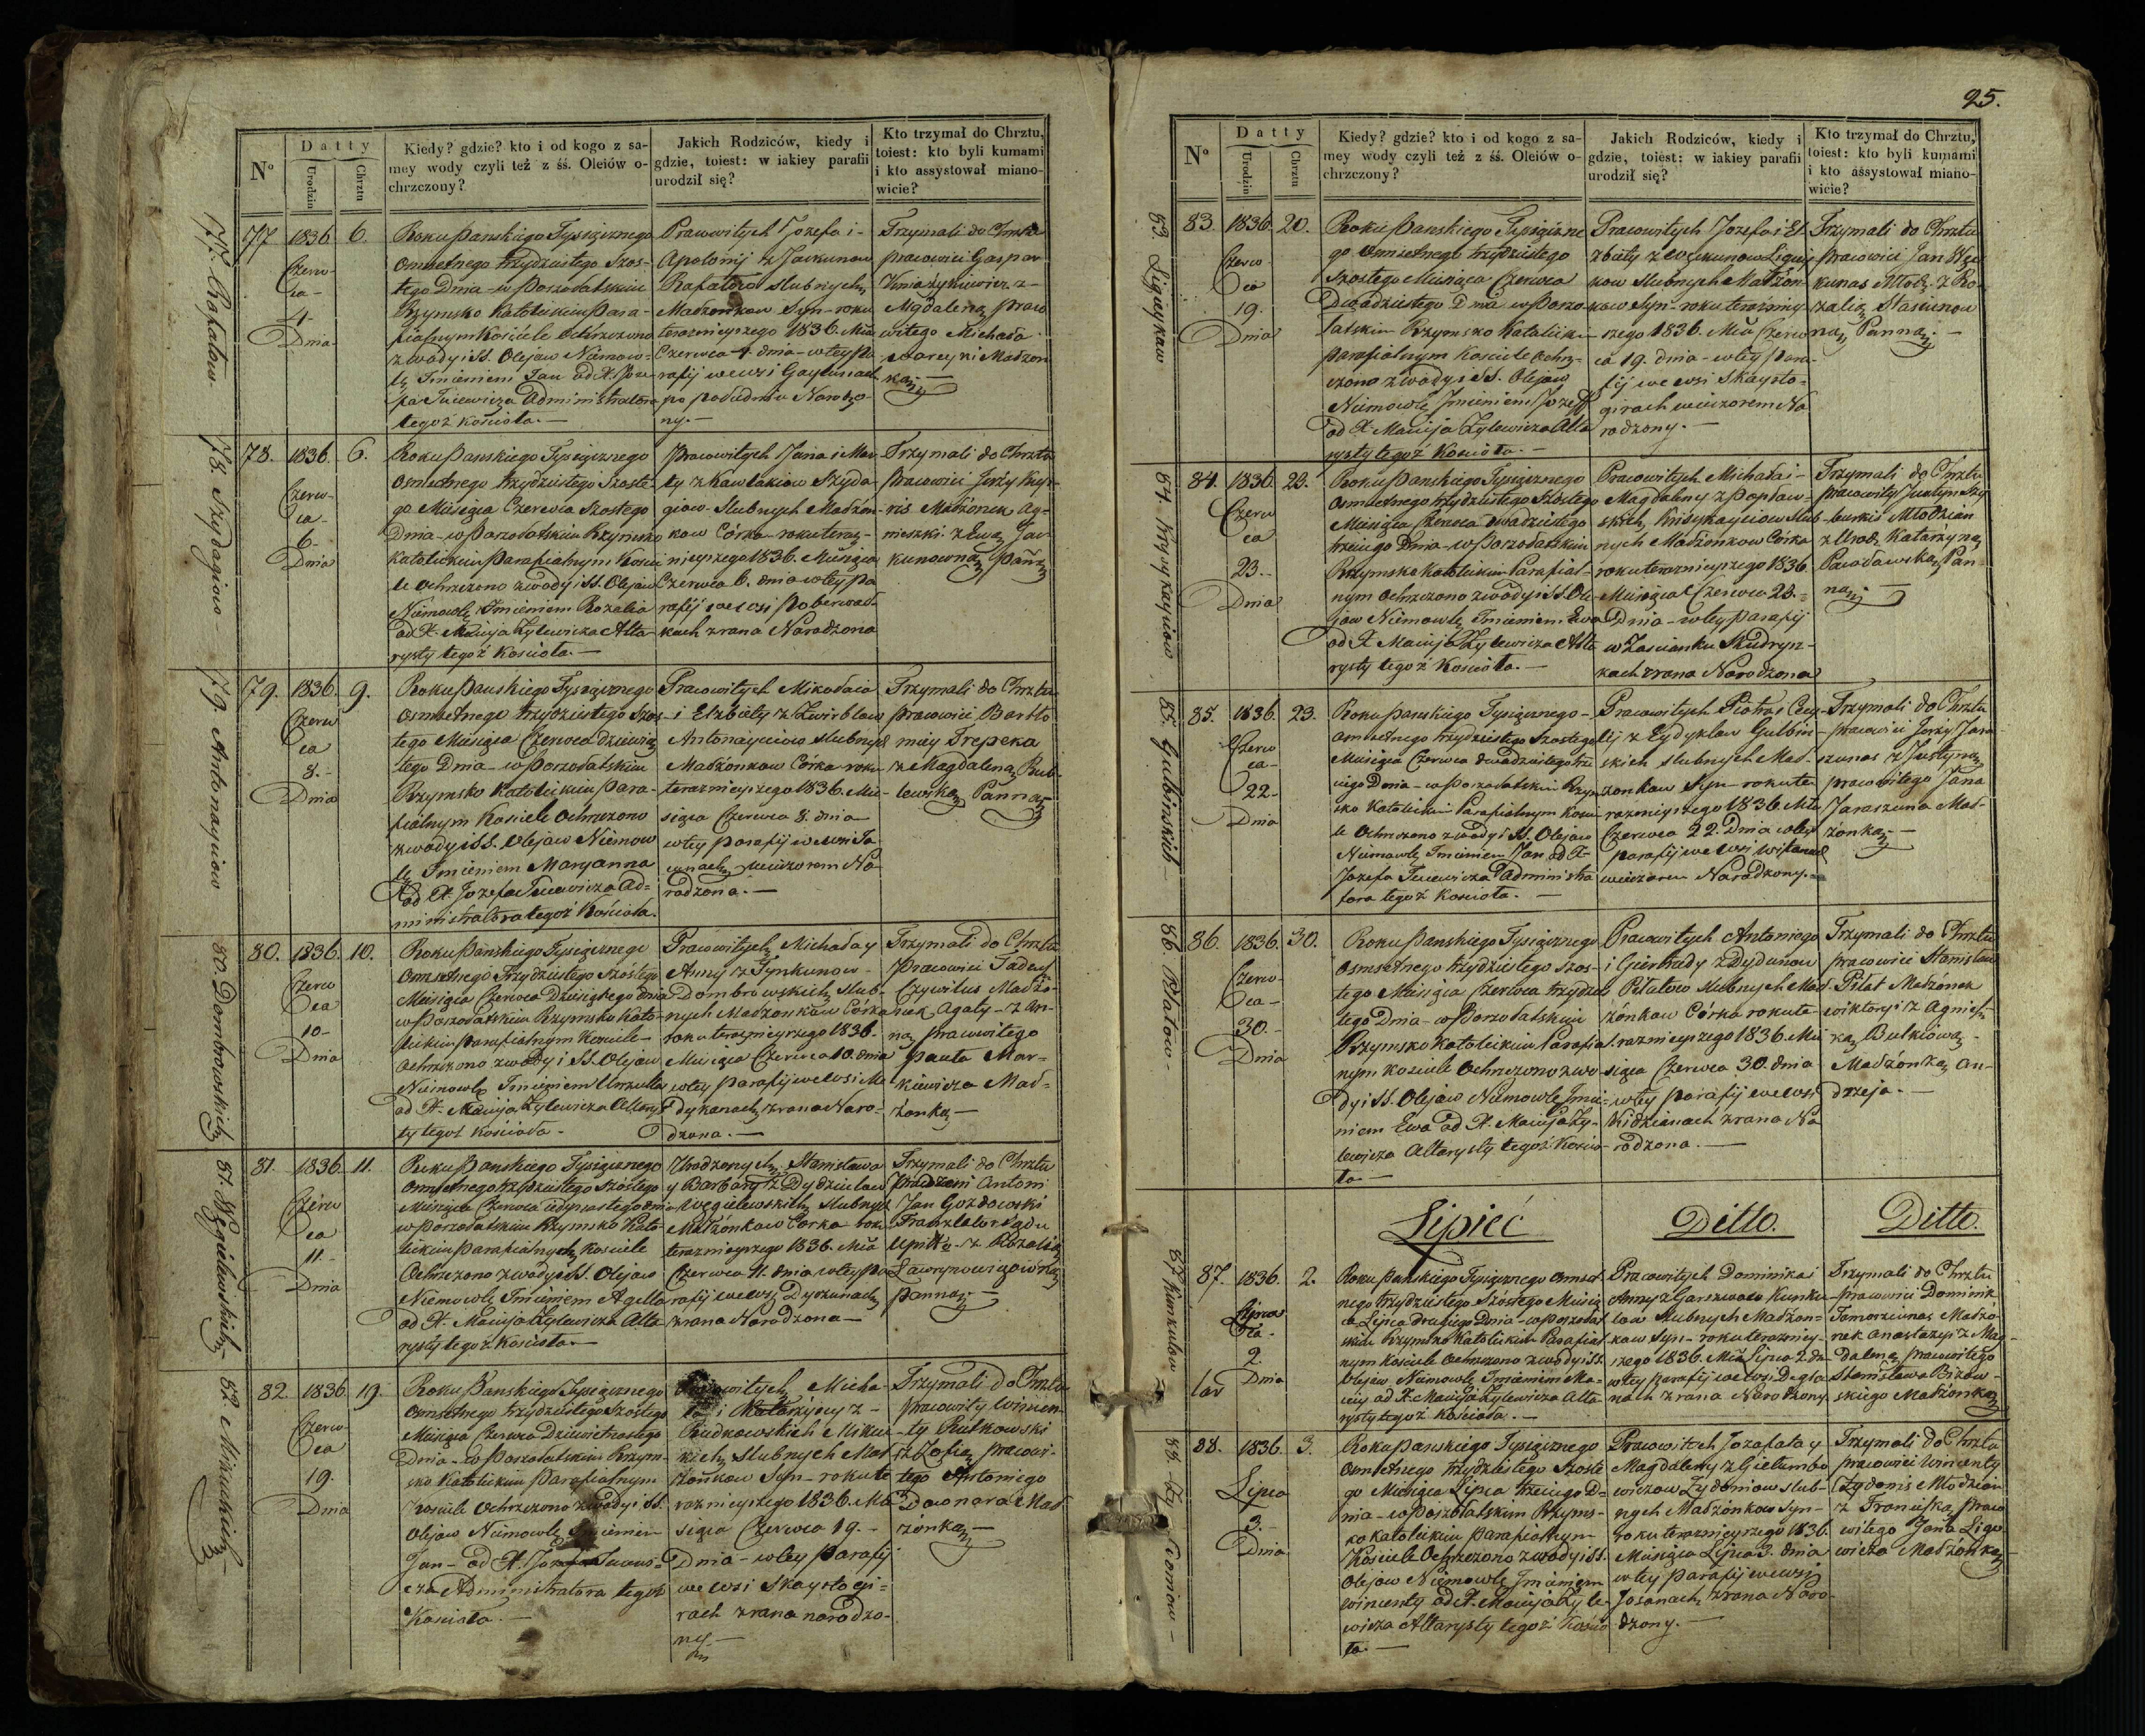 N°
Datty
Urodzin
Chrztu
Kiedy? gdzie? kto i od kogo z sa-
mey wody czyli też z śś. Oleiów o-
chrzczony?
Jakich Rodziców, kiedy i
gdzie, toiest: w iakiey parafii
urodził się?
Kto trzymał do Chrztu,
toiest: kto byli kumami
i kto assystował miano-
wicie?
77. Rafałow
77
1836
Czerw-
ca-
4-
Dnia
6.
Roku Pańskiego Tysiącznego
Osmsetnego trzydziestego Szos-
tego Dnia - w Poszołatskim
Rzymsko Katolickim Para-
fialnym Kościele Ochrzczono
z wody i SS. Olejow Niemow-
lę Imieniem Jan od X. Joze-
fa Administratora
tegoż Kościoła.-
Pracowitych Jozefa i-
Apolonij z Jankunow
Rafałow slubnych
Madżonkow Syn - roku
teraznieyszego 1836. Mca
Czerwca 4. dnia - w tey pa
rafij we wsi
po południu Narodzo-
ny.-
Trzymali do Chrztu
pracowici Gaspar
z-
Magdaleną praco
witego Michała
Madżon
ką.-
78. Szydagiow
78.
1836.
Czerw-
ca-
6-
Dnia
6.
Roku Pańskiego Tysiącznego
Osmsetnego trzydziestego Szoste
go Miesiąca Czerwca Szostego
Dnia - w Poszołatskim Rzymsko
Katolickim Parafialnym Kościo
le Ochrzczono z wody i SS. Olejow
Niemowlę Imieniem Rozalia
od X. Macieja Żylewicza Alta-
rysty tegoż Kościoła.-
Pracowitych Jana i Mar-
ty z Kawlakiow Szyda-
giow - Slubnych Madżon-
kow Córka roku teraz-
nieyszego 1836. Miesiąca
Czerwca 6. dnia w tey pa
rafij we wsi Poberwad-
kach z rana Narodzona
Trzymali do Chrztu
Pracowici Jerzy
Madżonek Ag-
nieszki z Ewą Jan-
kunowną Panną
79. Antonayciow
79.
1836.
Czerw
ca
8.-
Dnia
9.
Roku Pańskiego Tysiącznego
Osmsetnego trzydziestego Szos-
tego Miesiąca Czerwca dziewią
tego Dnia - w Poszołatskim
Rzymsko Katolickim Para-
fialnym Kościele Ochrzczono
z wody i SS. Olejow Niemow
lę Imieniem Maryanna
od X. Jozefa Ad=
ministratora tegoż Kościoła.
Pracowitych Mikołaia
i Elżbiety z Zwirblow
Antonayciow slubnych
Madżonkow Corka roku
teraznieyszego 1836. Mie-
siąca Czerwca 8. dnia
w tey parafij we wsi
wieczorem Na
rodzona.-
Trzymali do Chrztu
pracowici Bartło
miey Trepeka
z Magdaleną But-
lewską Panną
80. Dombrowskich
80.
1836.
Czerw
ca
10-
Dnia
10.
Roku Pańskiego Tysiącznego
Osmsetnego Trzydziestego Szóstego
Miesiąca Czerwca Dziesiątego dnia
w Poszołatskim Rzymsko Kato-
lickim parafialnym Kościele
Ochrzczono z wody i SS. Olejow
Niemowlę Imieniem Urszula
od X. Macieja Żylewicza Altarys
ty tegoż Kościoła-
Pracowitych Michała y
Anny z Tynkunow-
Dombrowskich slub-
nych Madżonkow Córka
roku teraznieyszego 1836.
Miesiąca Czerwca 10. dnia
w tey parafij we wsi Me
dykanach z rana Naro-
dzona.-
Trzymali do Chrztu
pracowici Tadeusz
Czywilus Madżo-
nek Agaty - z An-
ną pracowitego
Pawła Mar-
kiewicza Mad-
żonką-
81. Węgielewskich
81.
1836.
Czerw
ca
11-
Dnia
11.
Roku Pańskiego Tysiącznego
Osmsetnego trzydziestego Szóstego
Miesiąca Czerwca iedynastego dnia
w Poszołatskim Rzymsko Kato-
lickim parafialnych Kościele
Ochrzczono z wody i SS. Olejow
Niemowlę Imieniem Agella
od X. Macieja Żylewicza Alta
rysty tegoż Kościoła.-
Urodzonych Stanisława
y Barbary z Dydziulow
Węgielewskich slubnych
Madżonkow Corka roku
teraznieyszego 1836. Mca
Czerwca 11. dnia w tey pa
rafij we wsi Dyrżunach
z rana Narodzona-
Trzymali do Chrztu
Antoni
Jan Gozdowski
Translator Sądu
z Rozalią
Ławrynowiczowną
panną.-
82. Mikuckich
82.
1836.
Czerw-
ca
19.
Dnia
19.
Roku Pańskiego Tysiącznego
Osmsetnego trzydziestego Szostego
Miesiąca Czerwca Dziewietnastego
Dnia - w Poszołatskim Rzym-
sko Katolickim Parafialnym
Kościele Ochrzczono z wody i SS.
Olejow Niemowlę Imieniem
Jan - od X. Jozefa
cza Administratora tegoż
Kościoła.-
Pracowitych Micha-
ła i Katarzyny z-
Rudkowskich Mikuc-
kich Slubnych Mad-
żonkow Syn - roku te
raznieyszego 1836. Mie
siąca Czerwca 19.-
Dnia - w tey parafij
we wsi Skaystogi=
rach z rana narodzo-
ny.-
Trzymali do Chrztu
pracowity Wincen-
ty Rutkowski
z Zofią pracowi-
tego Antoniego
Downara Mad-
żonką-
25.
N°
Datty
Urodzin
Chrztu
Kiedy? gdzie? kto i od kogo z sa-
mey wody czyli też z śś. Oleiów o-
chrzczony?
Jakich Rodziców, kiedy i
gdzie, toiest: w iakiey parafii
urodził się?
Kto trzymał do Chrztu,
toiest: kto byli kumami
i kto assystował miano-
wicie?
83. Liguykow
83.
1836.
Czerw-
ca
19.
Dnia
20.
Roku Pańskiego Tysiączne
go Osmsetnego trzydziestego
Szostego Miesiąca Czerwca
Dwadziestego Dnia w Poszo-
łatskim Rzymsko Katolickim
Parafialnym Kościele Ochrz-
czono z wody i SS. Olejow
Niemowlę Imieniem Jozeff
od X. Macieja Żylewicza Alta
rysty tegoż Kościoła.-
Pracowitych Jozefa i El
zbiety z Liguy
kow slubnych Madżon-
kow Syn - roku teraźniey
szego 1836. Mca Czerw
ca 19. dnia - w tey para
fij we wsi Skaysto=
girach wieczorem Na
rodzony.-
Trzymali do Chrztu
pracowici Jan
kunas Młodz. z Ro-
zalią Stasiunow
ną Panną.-
84. Krysykayciow
84.
1836.
Czerw
ca
23.-
Dnia
23.
Roku Pańskiego Tysiącznego
Osmsetnego trzydziestego Szostego
Miesiąca Czerwca dwadziestego
trzeciego Dnia - w Poszołatskim
Rzymsko Katolickim Parafial-
nym Ochrzczono z wody i SS. Ole
jow Niemowlę Imieniem Ewa
od X. Macieja Żylewicza Alta
rysty tegoż Kościoła.-
Pracowitych Michała i-
Magdaleny z Popław-
skich, Krysykayciow slub-
nych Madżonkow Corka
roku teraznieyszego 1836
Miesiąca Czerwca 23.=
Dnia - w tey parafij
w Zaścianku Skudryn-
kach z rana Narodzona
Trzymali do Chrztu
pracowity Justyn
Młodzian
z Urodz. Katarzyną
Pan-
ną.
85. Gubinskich
85.
1836.
Czerw
ca-
22-
Dnia
23.
Roku Pańskiego Tysiącznego-
Osmsetnego trzydziestego Szostego
Miesiąca Czerwca dwadziestego trze
ciego Dnia - w Poszołatskim Rzym
sko Katolickim Parafialnym Kościo
le Ochrzczono z wody i SS. Olejow
Niemowlę Imieniem Jan od X-
Jozefa Administra
tora tegoż Kościoła.-
Pracowitych Piotra i Cecy-
lij z Eydyklow Gubin-
skich slubnych Mad-
żonkow Syn - roku te
raznieyszego 1836. Mca
Czerwca 22. Dnia w tey
parafij we wsi
wieczorem Narodzony.-
Trzymali do Chrztu
pracowici Jerzy Jara
szunas z Justyną
pracowitego Jana
Jaraszuna Mad-
żonką.-
86. Piłatow-
86.
1836.
Czerw-
ca-
30.-
Dnia
30.
Roku Pańskiego Tysiącznego
Osmsetnego trzydziestego Szos-
tego Miesiąca Czerwca trzydzies
tego Dnia - w Poszołatskim
Rzymsko Katolickim Parafial-
nym Kościele Ochrzczono z wo-
dy i SS. Olejow Niemowlę Imie-
niem Ewa od X. Macieja Ży-
lewicza Altarysty tegoż Kościo-
ła-
Pracowitych Antoniego
i Giertrudy z Dydunow
Piłatow slubnych Mad-
żónkow Córka roku te-
raznieyszego 1836. Mie
siąca Czerwca 30. dnia
w tey parafij we wsi
Kidzianach z rana Na
rodzona.-
Trzymali do Chrztu
pracowici Stanisław
Piłat Madżónek
Wiktoryi z Agniesz-
ką Butkiową-
Madżónką An-
drzeja.-
Lipieć
Ditto.
Ditto.
87. Kunkulow
87.
1836.
Lipca
2.
Dnia
2.
Roku Pańskiego Tysiącznego Osmset
nego trzydziestego Szóstego Miesią
ca Lipca drugiego Dnia - w Poszołat
skim Rzymsko Katolickim Parafial
nym Kościele Ochrzczono z wody i SS.
Olejow Niemowlę Imieniem Ma-
ciey od X. Macieja Żylewicza Alta-
rysty tegoż Kościoła.-
Pracowitych Dominika i
Anny z Garszwow Kunku-
low Slubnych Madżon-
kow Syn - roku teraźniey-
szego 1836. Mca Lipca 2. dn-
w tey parafij we wsi
nach z rana Narodzony.
Trzymali do Chrztu
pracowici Dominik
Madżo-
nek Anastazyi z Mag-
daleną pracowitego
Stanisława
skiego Madżónką
88.
88.
1836.
Lipca
3.-
Dnia
3.
Roku Pańskiego Tysiącznego
Osmsetnego trzydziestego Szoste
go Miesiąca Lipca trzeciego D-
nia - w Poszołatskim Rzyms-
ko Katolickim Parafialnym
Kościele Ochrzczono z wody i SS.
Olejow Niemowlę Imieniem
Wincenty od X. Macieja Żyle-
wicza Altarysty tegoż Kościo
ła.-
Pracowitych Jozafata y
Magdaleny z Giełumbo
wiczow Żydoniow slub-
nych Madżonkow Syn-
roku teraznieyszego 1836.
Miesiąca Lipca 3. dnia
w tey parafij we wsi
Josanach, z rana Naro-
dzony.-
Trzymali do Chrztu
pracowici Wincenty
Żydonis Młodzian
z Franciszką praco
witego Jana Ligo
wicza Madżónką